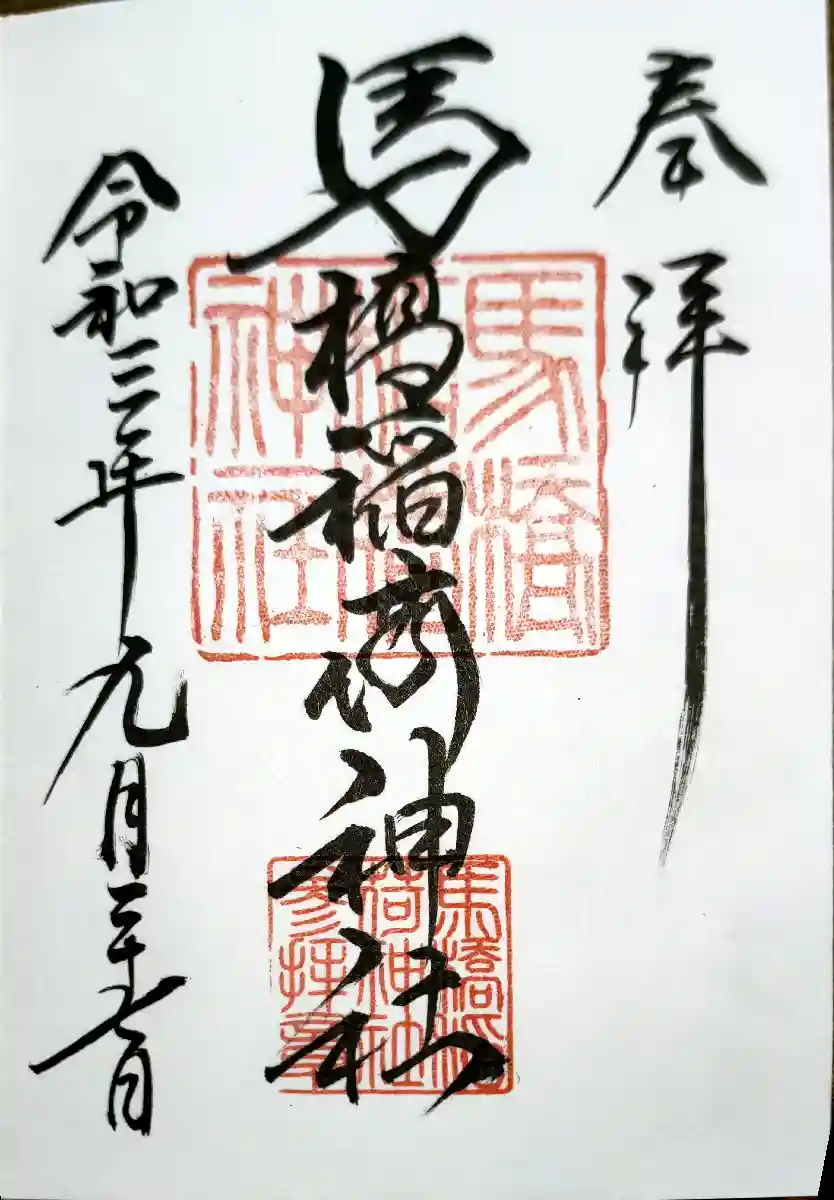 奉拝
馬橋稲荷神社
令和三年九月二十七日
馬橋
稲荷
神社
馬橋稲
荷神社
参拝章